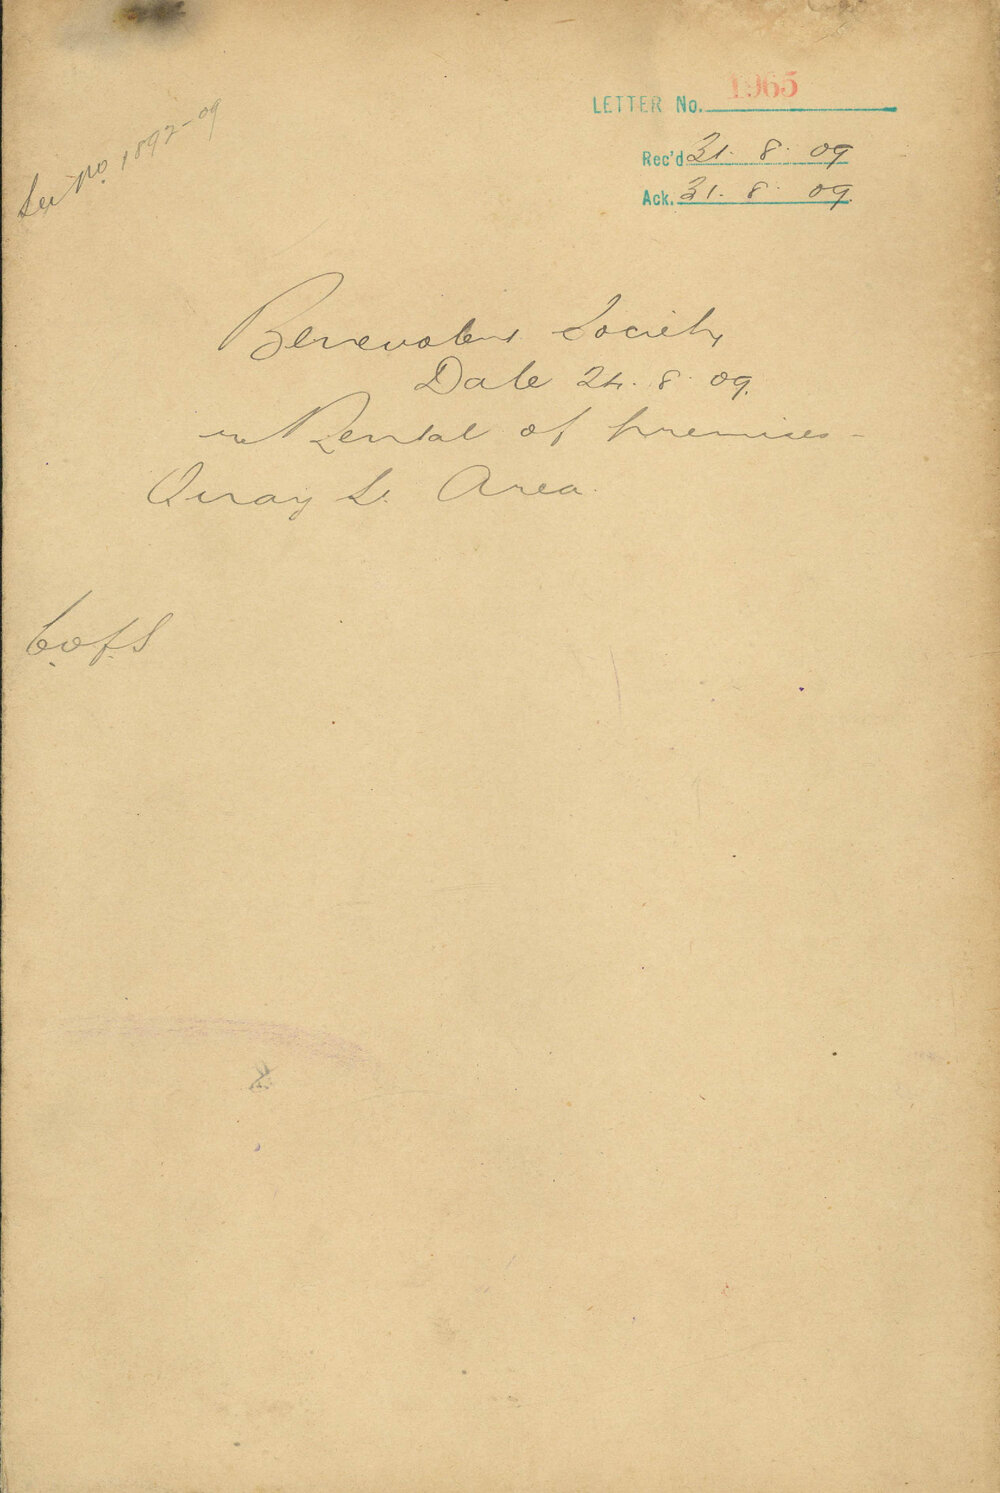 LETTER No. 1965
Rec'd 31. 8. 09
Ack. 31. 8. 09.
See No. 1892-09
Benevolent Society
Date 24. 8. 09.
re Rental of premises -
Quay St. Area.
C.of.S